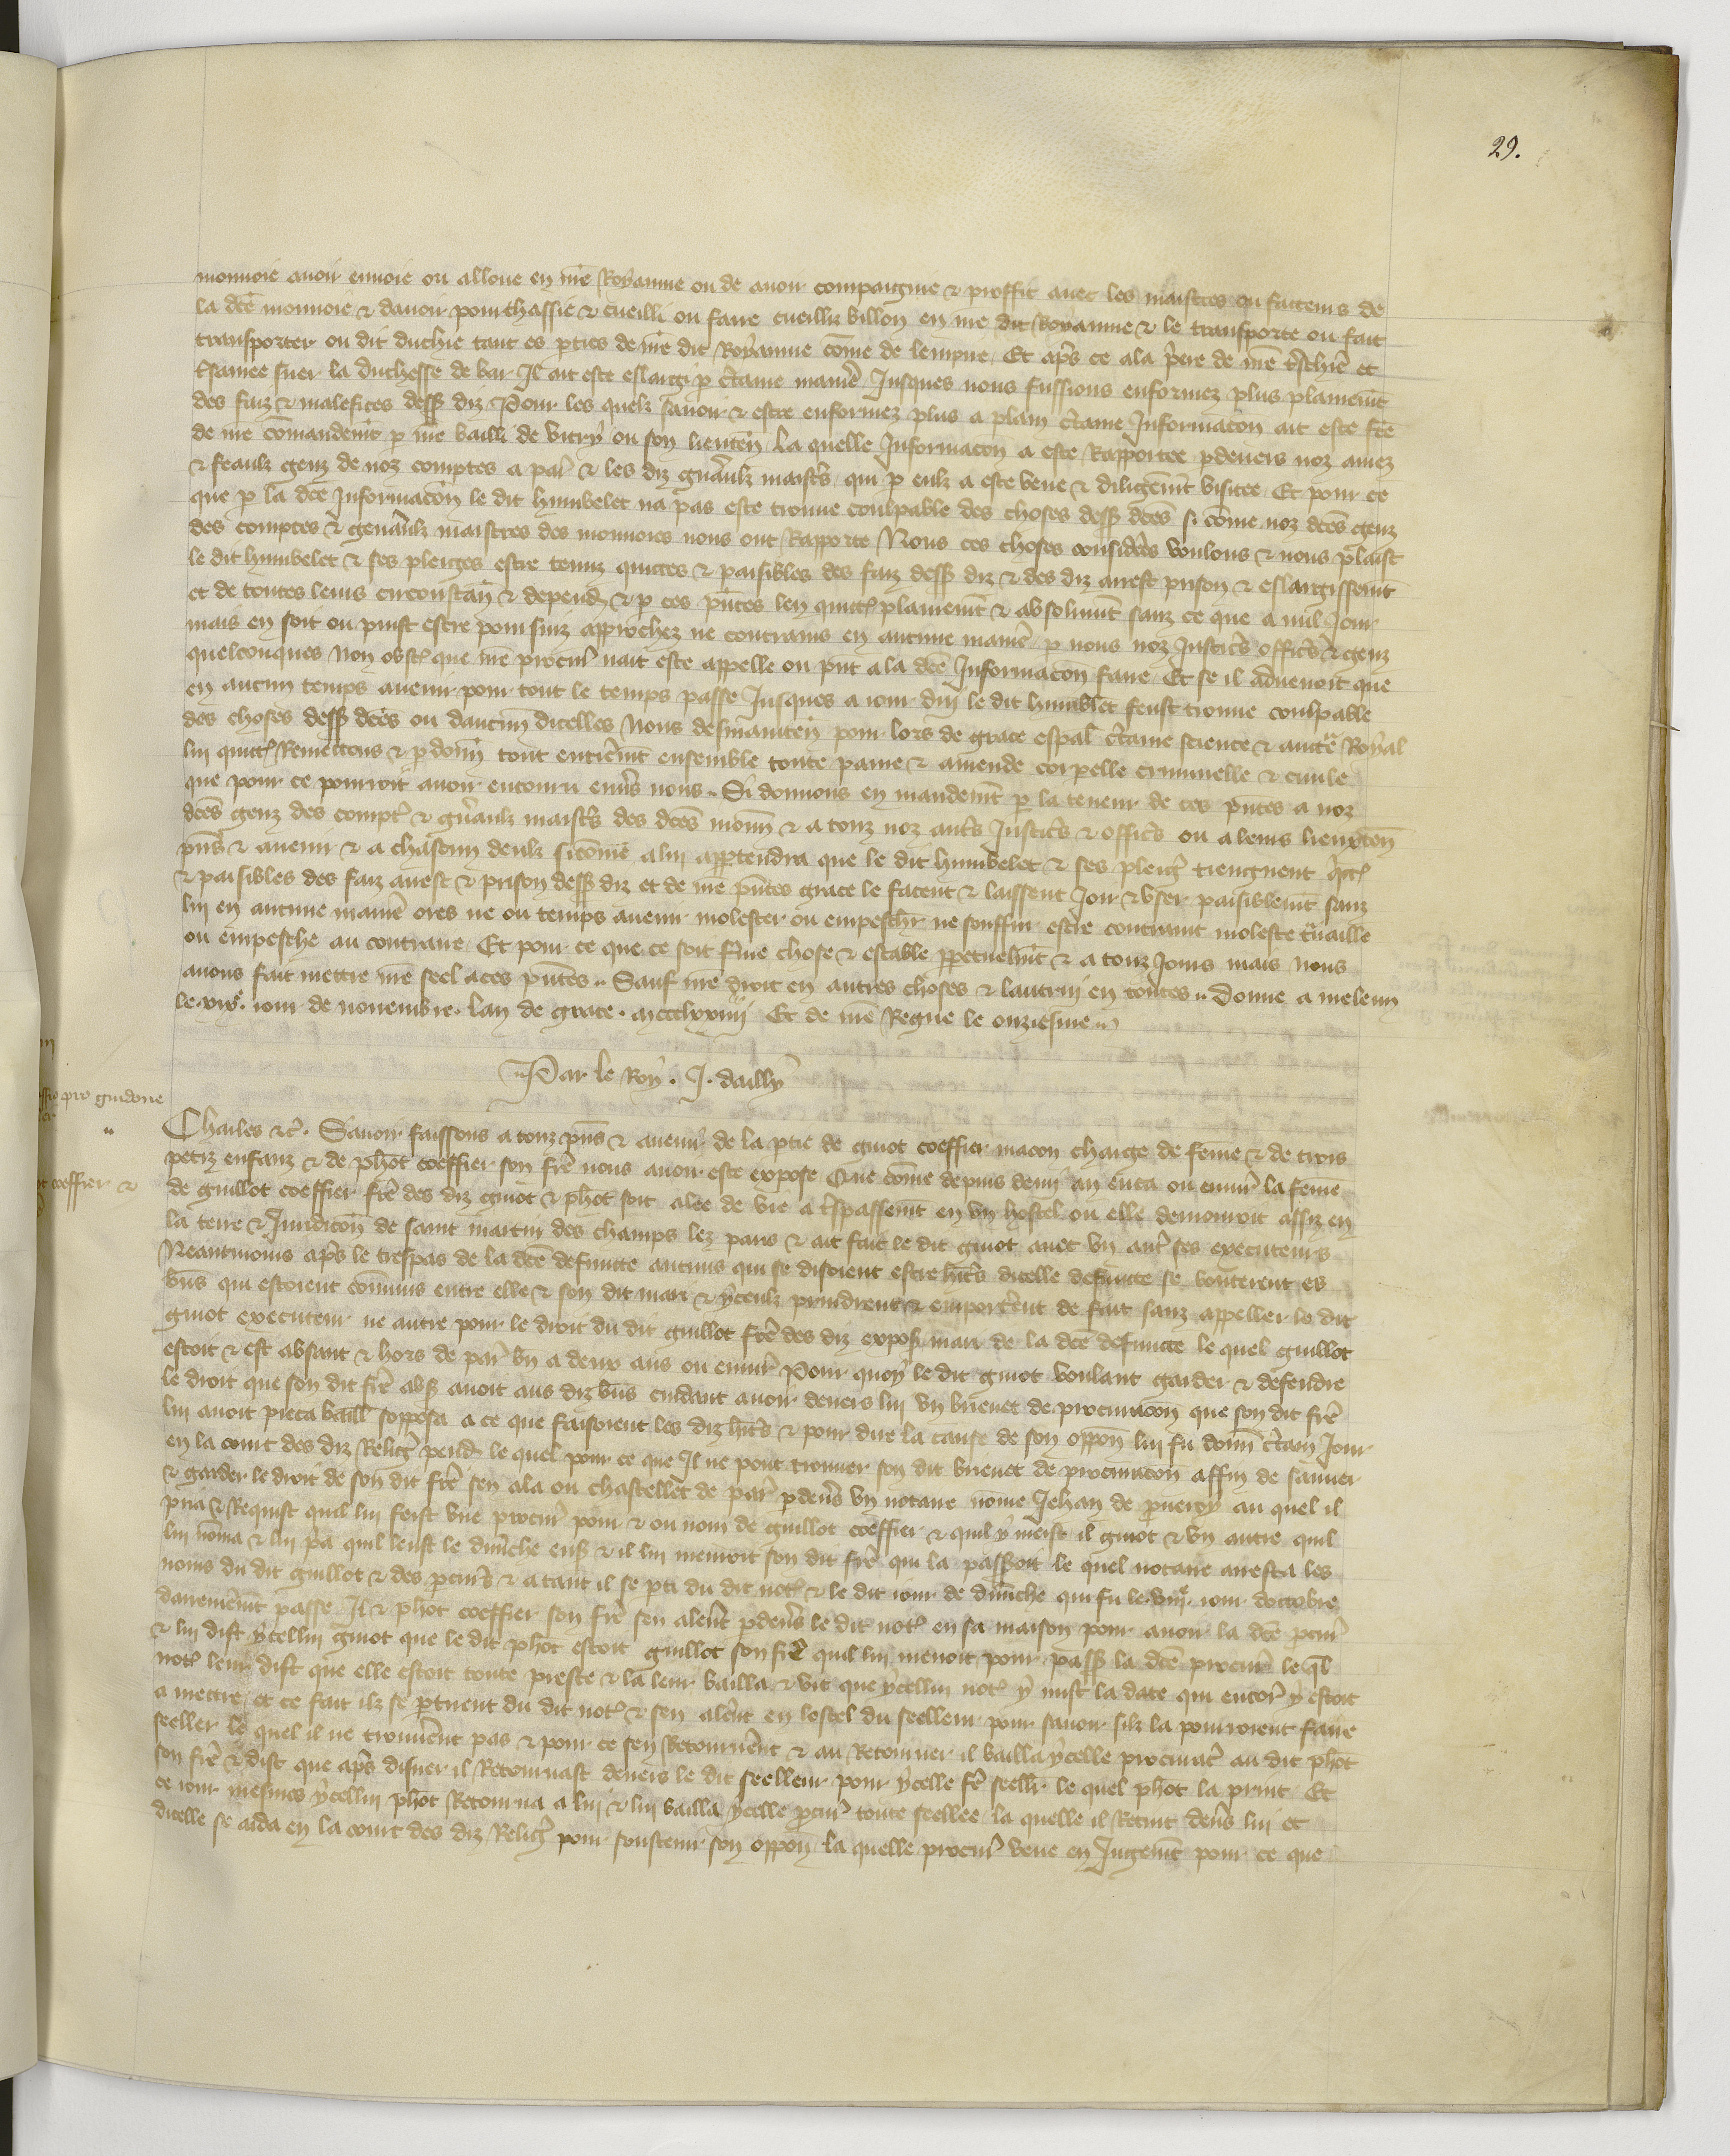 29.
monnoie avoir envoié ou alloué en nr̄e Royaume ou de avoir compaignie & proffit avec les maistres ou facteurs de
la dc̄e monnoie & davoir pourchassié & cueilli ou faire cueillir billon en nr̄e dit Royaume & le transporté ou fait
transporter ou dit duchie tant es pties de nr̄e dit Royaume cōme de lempire Et apr̄s ce ala p̄iere de nr̄e tr̄schiere et
tr̄samee suer la duchesse de bar Il ait esté eslargi p c̄taine manier̄ Jusques nous fussions enformez plus plainemt̄
des faiz & malefices dess9 diz Pour les quelz savoir & estre enformez plus a plain c̄taine Informacōn ait esté fc̄e
de nr̄e cōmandemt̄ p nr̄e bailli de vitry ou son lieuten̄ La quelle Informacōn a esté Rapportee pdevers noz amez
& feaulz genz de noz comptes a par̄ & les diz gn̄aulz maistr̄s qui p eulz a esté veue & diligēmt̄ visitee Et pour ce
que p la dc̄e Informacōn le dit humbelet na pas esté trouvé coulpable des choses dess9 dc̄es si cōme noz dc̄es genz
des comptes & gen̄aulz maistres des monnoies nous ont Rapporté Nous ces choses consider̄s voulons & nous plaist
le dit humbelet & ses pleiges estre tenuz quictes & paisibles des faiz dess9 diz & des diz arrest prison & eslargissemt̄
et de toutes leurs circonstan̄ & depend̄ & p ces pn̄tes len quict̄ plainemt̄ & absolumt̄ sanz ce que a nul Jour
mais en soit ou puist estre poursuiz approchez ne contrains en aucune manier̄ p nous noz Justicr̄s officr̄s & genz
quelconques Non obst̄ que nr̄e procur̄ nait esté appellé ou pn̄t ala dc̄e Informacōn faire Et se il advenoit que
en aucun temps avenir pour tout le temps passé Jusques a iour dui le dit humblet feust trouvé coulpable
des choses dess9 dc̄es ou daucun̄ dicelles Nous desmainten̄ pour lors de grace esp̄al c̄taine science & auctē Royal
lui quict̄ Remettons & pdonn̄ tout entierem̄t ensemble toute paine & amende corpelle criminelle & civile
que pour ce pourroit avoir encouru env̄s nous. Si donnons en mandemt̄ p la teneur de ces pn̄tes a noz
dc̄es genz des compt̄ & gn̄aulz maistr̄s des dc̄es monn̄ & a touz noz autr̄s Justicr̄s & officr̄s ou a leurs lieuxten̄
pn̄s & avenir & a chascun deulz sicōme alui apptendra que le dit humbelet & ses pleiḡ tiengnent qc̄t̄
& paisibles des faiz arrest & prison dess9 diz et de nr̄e pn̄tes grace le facent & laissent Joir & user paisiblemt̄ sanz
lui en aucune manier̄ ores ne ou temps avenir molester ou empeschier̄ ne souffrir estre contraint molesté trav̄aillé
ou empesché au contraire Et pour ce que ce soit ferme chose & estable ppetuelmt̄ & a touz Jours mais Nous
avons fait mettre nr̄e seel aces pn̄tes.. Sauf nr̄e droit en autres choses & lautrui en toutes.. donné a meleun
le xixe. iour de novembre. lan de grace. mccclxxiiij Et de nr̄e Regne le onziesme..
Par le Roy. J. dailly
pro guidone
coeffier &
Charles &c̄. Savoir faisons a touz pn̄s & avenir̄ de la ptie de guiot coeffier macon chargé de fēme & de trois
petiz enfanz & de ph̄ot coeffier son fr̄e nous avoir esté exposé Que cōme depuis demi an enca ou envir̄ la fēme
de guillot coeffier fr̄e des diz guiot & ph̄ot soit alee de vie a tr̄spassemt̄ en un hostel ou elle demouroit assiz en
la terre & Juridicōn de saint martin des champs lez paris & ait fait le dit guiot avec un autr̄ ses executeurs
Neantmoins apr̄s le trespas de la dc̄e defuncte aucuns qui se disoient estre hit̄rs dicelle defuncte se bouterent es
bn̄s qui estoient cōmuns entre elle & son dit mari & yceulz prindrent & emporter̄nt de fait sanz appeller le dit
guiot executeur ne autre pour le droit du dit guillot fr̄e des diz expos9 mari de la dc̄e defuncte le quel guillot
estoit & est absant & hors de par̄ un a deux ans ou envir̄ Pour quoy le dit guiot voulant garder & defendre
le droit que son dit fr̄e abs9 avoit aus diz bn̄s cuidant avoir devers lui un brievet de procuracōn que son dit fr̄e
lui avoit pieca baill̄ sopposa a ce que faisoient les diz hit̄rs & pour dire la cause de son oppōn lui fu donn̄ c̄tain Jour
en la court des diz Reliḡ pend̄ le quel pour ce que Il ne pout trouver son dit brievet de procuracōn affin de sauver
& garder le droit de son dit fr̄e sen ala ou chastellet de par̄ pdev̄s un notaire nōmé Jehan de pruvery au quel il
pria & Requist quil lui feist une procur̄ pour & ou nom de guillot coeffier & quil y meist il guiot & un autre quil
lui nōma & lui p̄a quil leust le dim̄che ens9 & il lui menroit son dit fr̄e qui la passeroit le quel notaire arresta les
noms du dit guillot & des pcur̄s & atant il se pti du dit not̄ & le dit iour de dim̄che qui fu le viije iour doctobre
darrenierem̄t passé Il & ph̄ot coeffier son fr̄e sen aler̄nt pdev̄s le dit not̄ en sa maison pour avoir la dc̄e pcur̄
& lui dist ycellui guiot que le dit ph̄ot estoit guillot son fr̄e quil lui menoit pour pass9 la dc̄e procur̄ leql̄
not̄ leur dist que elle estoit toute preste & la leur bailla & vit que ycellui not̄ y mist la date qui encor̄ y estoit
a mettre et ce fait ilz se ptirent du dit not̄ & sen aler̄nt en lostel du seelleur pour savoir silz la pourroient faire
seeller le quel il ne trouver̄nt pas & pour ce sen Retourner̄nt & au Retourner il bailla ycelle procurac̄ au dit ph̄ot
son fr̄e & dist que apr̄s disner il Retournast devers le dit seelleur pour ycelle fē seeller̄ le quel ph̄ot la print Et
ce iour mesmes ycellui ph̄ot Retourna a lui & lui bailla ycelle pcur̄ toute seellee la quelle il Retint dev̄s lui et
dicelle se aida en la court des diz Reliḡ pour soustenir son oppōn la quelle procur̄ veue en Jugemt̄ pour ce que